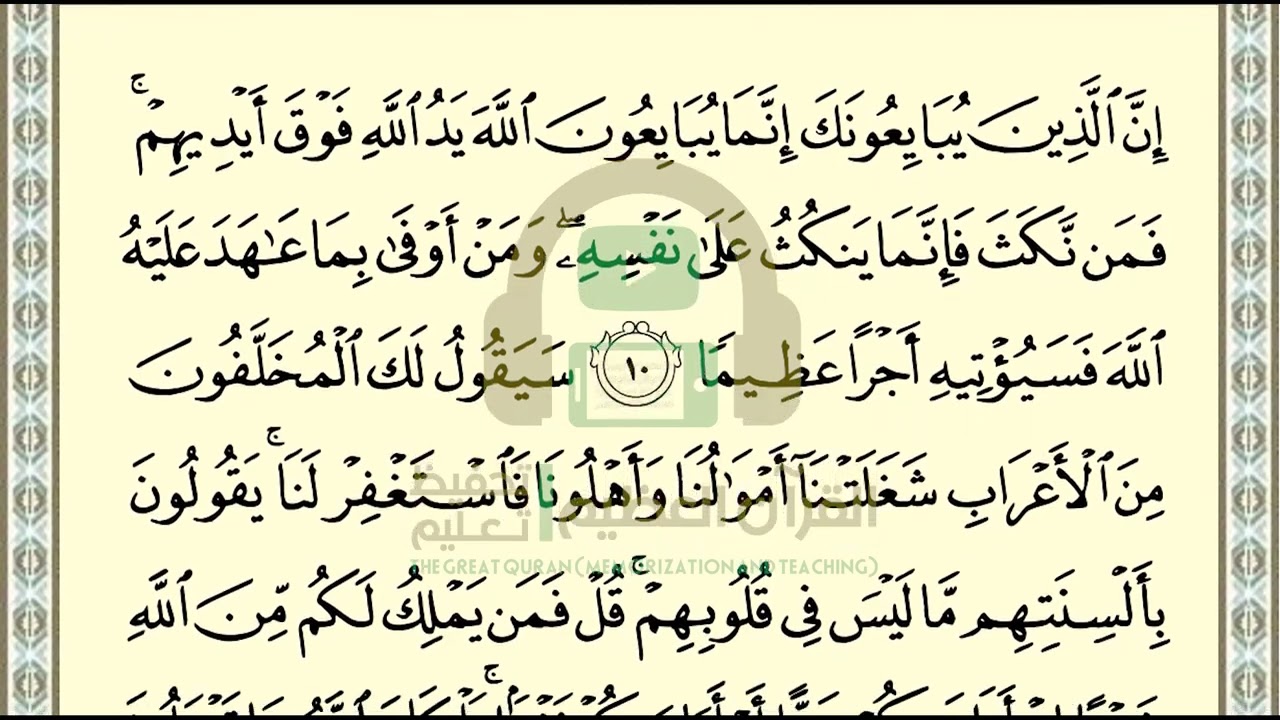 إِنَّ ٱلَّذِينَ يُبَايِعُونَكَ إِنَّمَا يُبَايِعُونَ ٱللَّهَ يَدُ ٱللَّهِ فَوْقَ أَيْدِيهِمْ ۚ
فَمَن نَّكَثَ فَإِنَّمَا يَنكُثُ عَلَىٰ نَفْسِهِۦ ۖ وَمَنْ أَوْفَىٰ بِمَا عَـٰهَدَ عَلَيْهُ
ٱللَّهَ فَسَيُؤْتِيهِ أَجْرًا عَظِيمًا ١٠ سَيَقُولُ لَكَ ٱلْمُخَلَّفُونَ
مِنَ ٱلْأَعْرَابِ شَغَلَتْنَآ أَمْوَٰلُنَا وَأَهْلُونَا فَٱسْتَغْفِرْ لَنَا ۚ يَقُولُونَ
القرآن العظيم | تحفيظ تعليم
THE GREAT QURAN (MEMORIZATION AND TEACHING)
بِأَلْسِنَتِهِم مَّا لَيْسَ فِى قُلُوبِهِمْ ۚ قُلْ فَمَن يَمْلِكُ لَكُم مِّنَ ٱللَّهِ